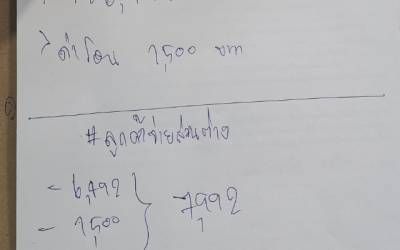 ค่าโอน 1,500 บาท
#ลูกค้าจ่ายส่วนต่าง
- 6,492 } 7,992
- 1,500